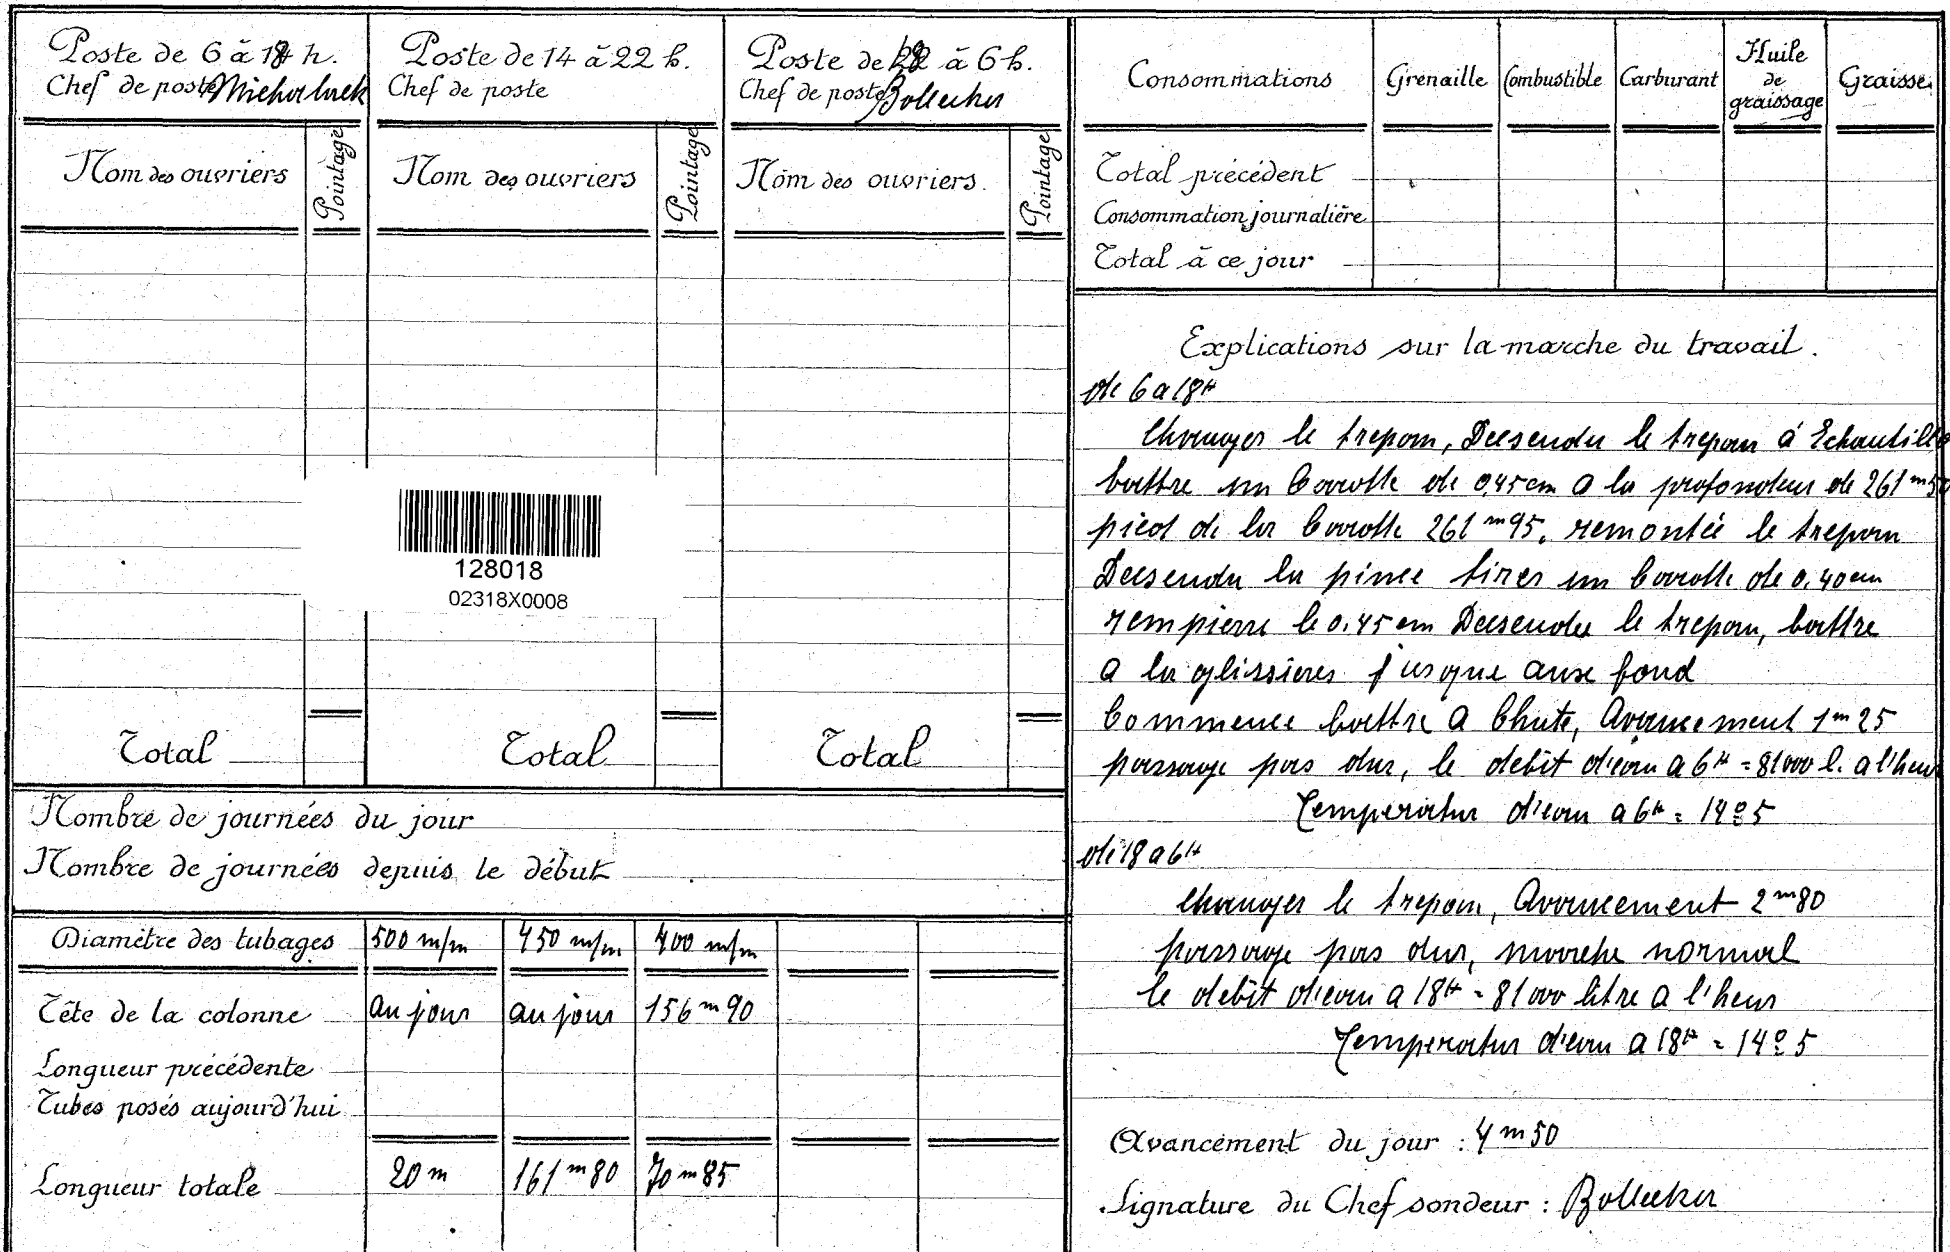 Poste de 6 à 18 h.
Chef de poste
Nom des ouvriers
Pointage
Total
Poste de 14 à 22 h.
Chef de poste
Nom des ouvriers
Pointage
Total
Poste de 18 à 6 h.
Chef de poste Bollecker
Nom des ouvriers
Pointage
Total
128018
02318X0008
Nombre de journées du jour
Nombre de journées depuis le début
Diamètre des tubages 500 m/m 450 m/m 400 m/m
Tête de la colonne au jour au jour 156 m 90
Longueur précédente
Tubes posés aujourd'hui
Longueur totale 20 m 161 m 80 70 m 85
Consommations Grenaille Combustible Carburant Huile de graissage Graisse
Total précédent
Consommation journalière
Total à ce jour
Explications sur la marche du travail.
de 6 a 18 H
Changer le trepan, Desendu le trepan á Echantillo
battre un Carotte de 0,45 cm a la profondeur de 261 m 50
pied de la Carotte 261 m 95, remontée le trepan
Desendu la pince tirer un Carotte de 0,40 cm
rempierre le 0.45 cm Desendu le trepan, battre
a la glissieres jusque aux fond
Commence battre a Chute, Avancement 1 m 25
passage pas dur, le debit d'eau a 6 H = 81000 l. a l'heur
Temperatur d'eau a 6 H = 14° 5
de 18 a 6 H
Changer le trepan, Avancement 2 m 80
passage pas dur, marche normal
le debit d'eau a 18 H = 81000 litre a l'heur
Temperatur d'eau a 18 H = 14° 5
Avancement du jour : 4 m 50
Signature du Chef sondeur : Bollecker